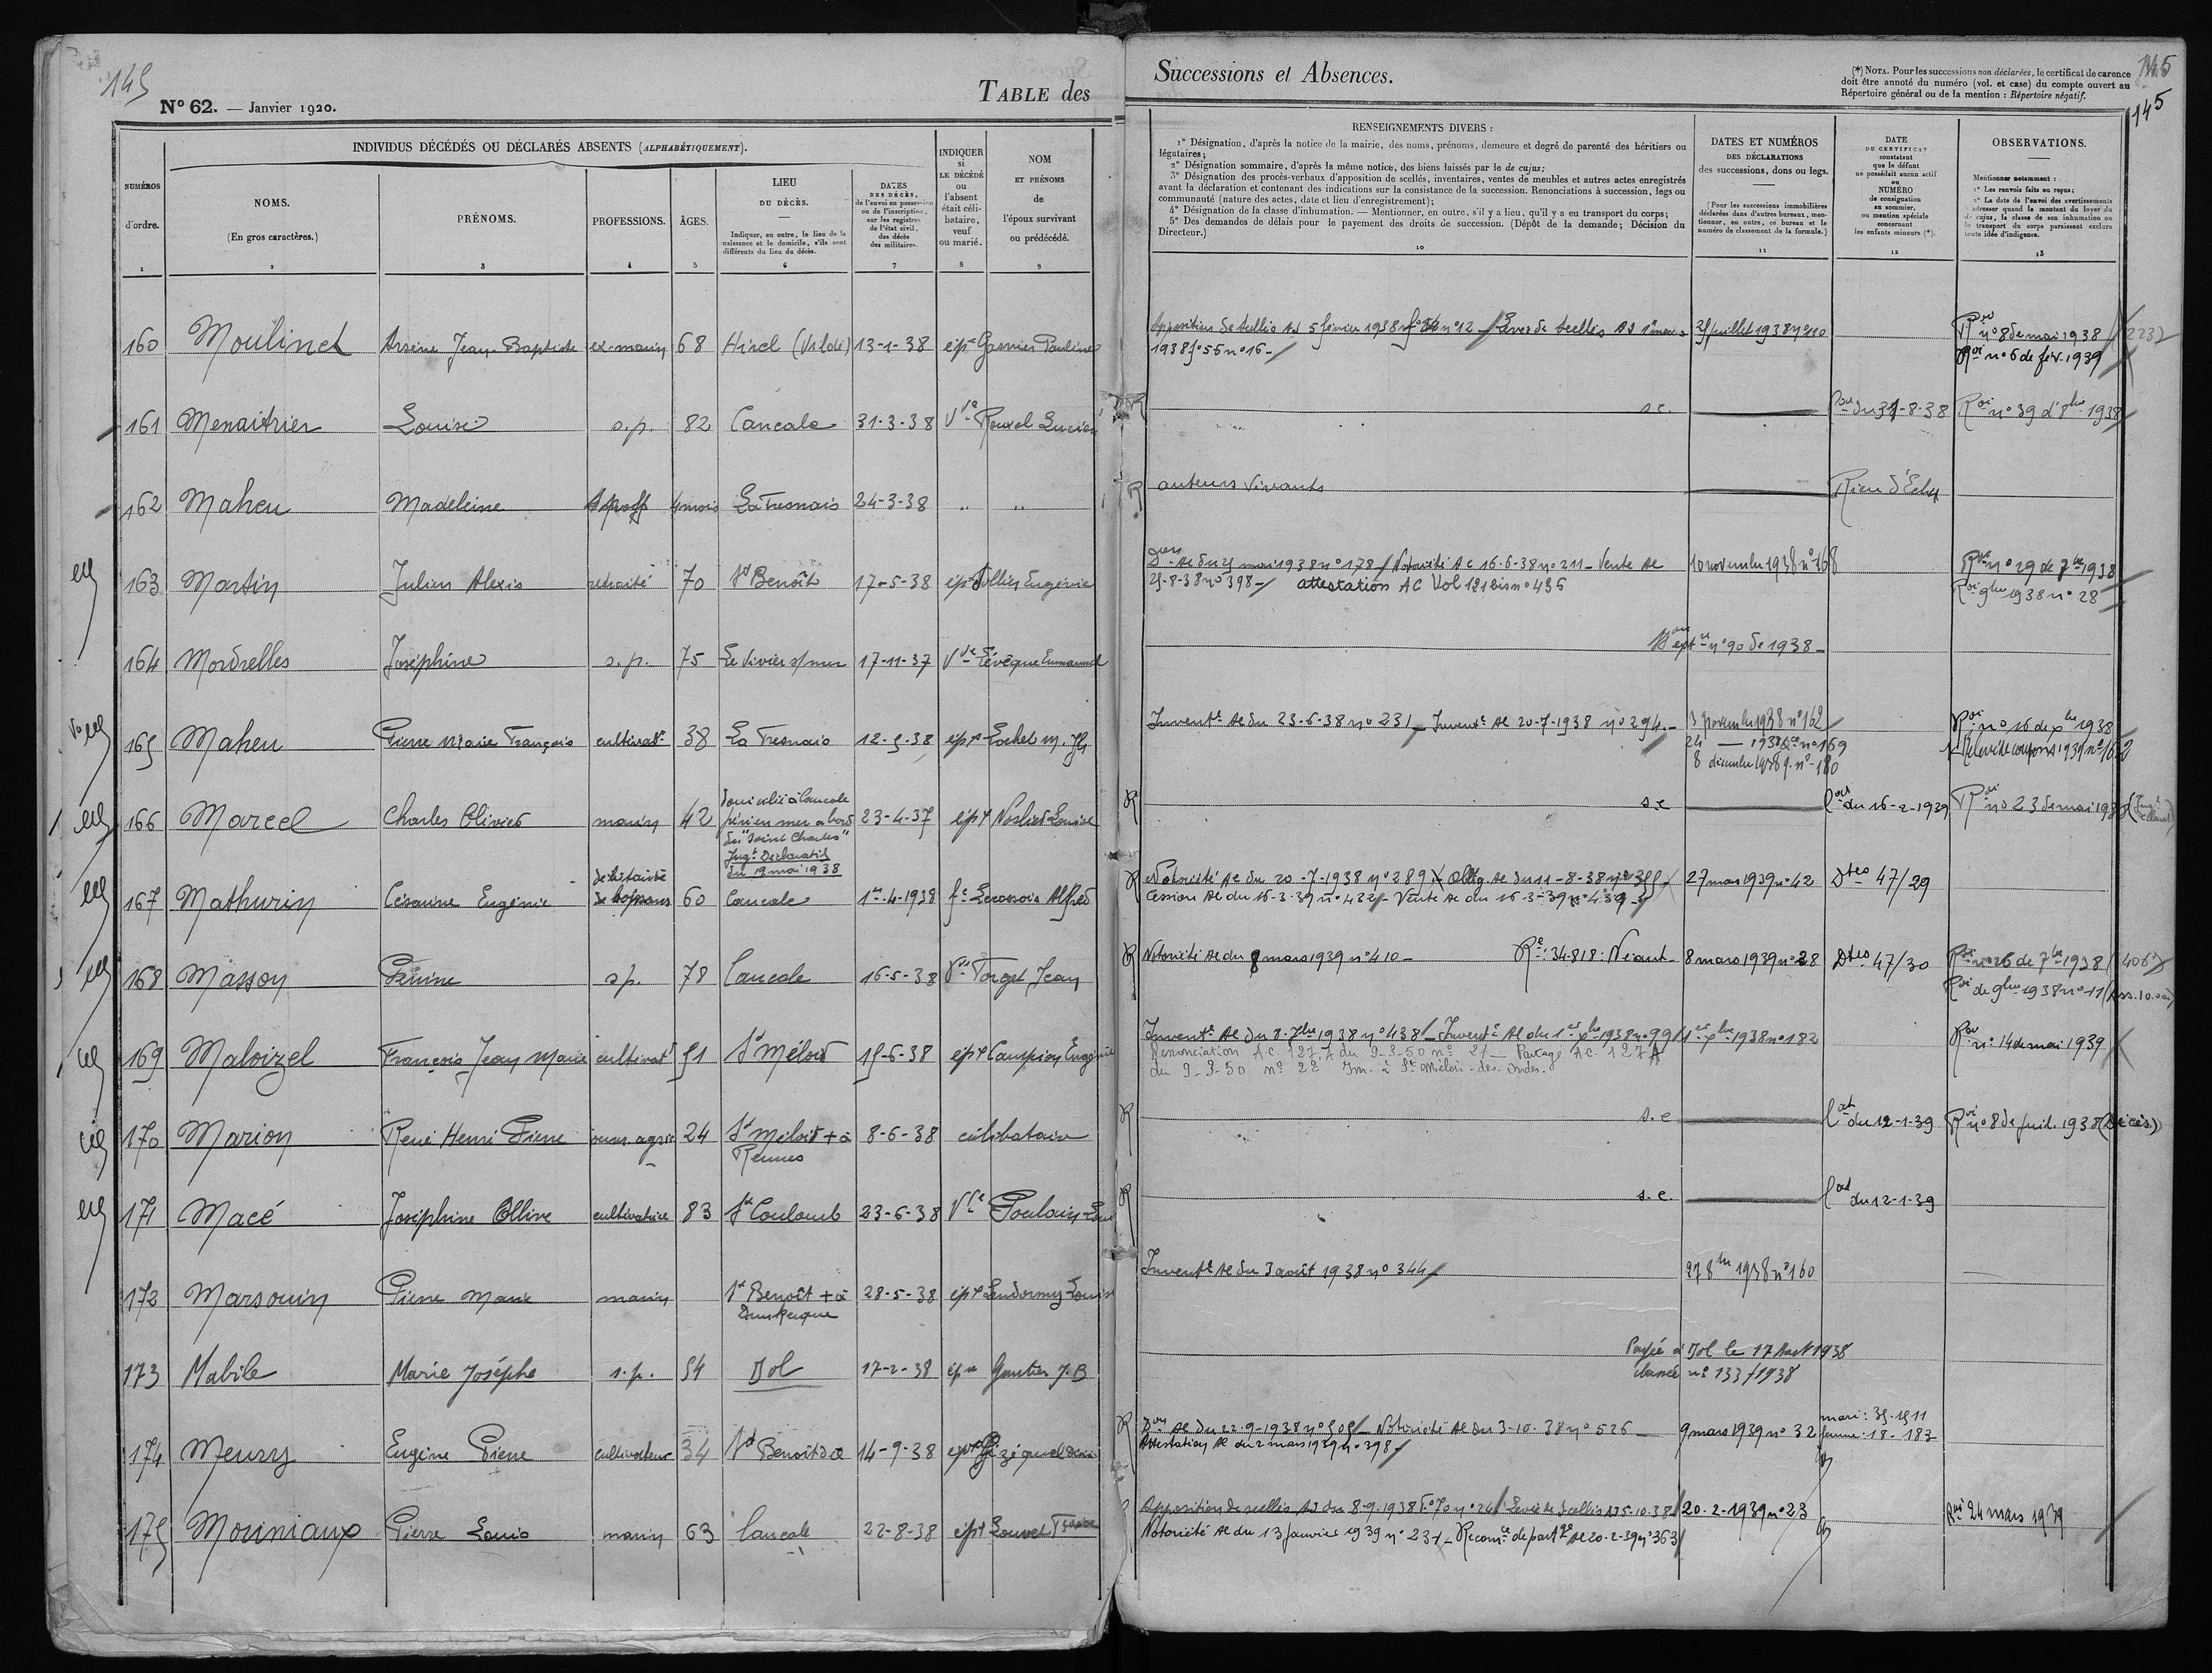 145
N° 62. — Janvier 1920.
TABLE des
INDIVIDUS DÉCÉDÉS OU DÉCLARÉS ABSENTS (ALPHABÉTIQUEMENT).
NUMÉROS d'ordre.
NOMS. (En gros caractères.)
PRÉNOMS.
PROFESSIONS.
ÂGES.
LIEU DU DÉCÈS.
Indiquer, en outre, le lieu de la naissance et le domicile, s'ils sont différents du lieu du décès.
DATES DES DÉCÈS, de l'envoi en possession ou de l'inscription, sur les registres de l'état civil, des décès des militaires.
INDIQUER si LE DÉCÉDÉ ou l'absent était célibataire, veuf ou marié.
NOM ET PRÉNOMS de l'époux survivant ou prédécédé.
1 2 3 4 5 6 7 8 9
160 Moulinet Arsène Jean-Baptiste ex-marin 68 Hirel (Vildé) 13-1-38 épx Gasnier Pauline
161 Menaitrier Louise s.p. 82 Cancale 31-3-38 Vve Rouxel Lucien
162 Maheu Madeleine 4 mois La Fresnais 24-3-38 " "
163 Martin Julien Alexis retraité 70 St Benoît 17-5-38 épx Jollier Eugénie
164 Mordrelles Joséphine s.p. 75 Le Vivier s/mer 17-11-37 Vve Lévêque Emmanuel
165 Maheu Pierre Marie François cultivatr 38 La Fresnais 12-5-38 épx Lochet M. Jh
166 Marcel Charles Olivier marin 42 domicilié à Cancale
péri en mer à bord
du "Saint Charles"
Jugt Déclaratif
du 19 mai 1938
23-4-37 épx Louise
167 Mathurin Césarine Eugénie débitante
de boissons
60 Cancale 1er-4-1938 fe Alfred
168 Masson s.p. 78 Cancale 16-5-38 Vve Torget Jean
169 Maloizel François Jean Marie cultivatr 51 St Méloir 15-6-38 épx Campion Eugénie
170 Marion René Henri Pierre ouvr. agric 24 St Méloir + à
Rennes
8-6-38 célibataire
171 Macé Joséphine Ollive cultivatrice 83 St Coulomb 23-6-38 Vve Poulain
172 Marsouin Pierre Marie marin St Benoît + à
Dunkerque
28-5-38 épx
173 Mabile Marie Josèphe s.p. 54 Dol 17-2-38 épse Gautier J.B
174 Meury Eugène Pierre cultivateur 34 St Benoît 14-9-38
175 Mouniaux Pierre Louis marin 63 Cancale 22-8-38 épx Louvet
Successions et Absences.
(*) NOTA. Pour les successions non déclarées, le certificat de carence doit être annoté du numéro (vol. et case) du compte ouvert au Répertoire général ou de la mention : Répertoire négatif.
145
145
RENSEIGNEMENTS DIVERS :
1° Désignation, d'après la notice de la mairie, des noms, prénoms, demeure et degré de parenté des héritiers ou légataires;
2° Désignation sommaire, d'après la même notice, des biens laissés par le de cujus;
3° Désignation des procès-verbaux d'apposition de scellés, inventaires, ventes de meubles et autres actes enregistrés avant la déclaration et contenant des indications sur la consistance de la succession. Renonciations à succession, legs ou communauté (nature des actes, date et lieu d'enregistrement);
4° Désignation de la classe d'inhumation. — Mentionner, en outre, s'il y a lieu, qu'il y a eu transport du corps;
5° Des demandes de délais pour le payement des droits de succession. (Dépôt de la demande; Décision du Directeur.)
DATES ET NUMÉROS DES DÉCLARATIONS des successions, dons ou legs.
(Pour les successions immobilières déclarées dans d'autres bureaux, mentionner, en outre, ce bureau et le numéro de classement de la formule.)
DATE DU CERTIFICAT constatant que le défunt ne possédait aucun actif ou NUMÉRO de consignation au sommier, ou mention spéciale concernant les enfants mineurs (*).
OBSERVATIONS.
Mentionner notamment :
1° Les renvois faits ou reçus;
2° La date de l'envoi des avertissements à adresser quand le montant du loyer du de cujus, la classe de son inhumation ou le transport du corps paraissent exclure toute idée d'indigence.
10 11 12 13
Apposition de scellés AJ 5 février 1938 n° 12 — Levée de scellés AJ 1er mars 25 juillet 1938 n° 110 Roi n° 8 de mai 1938 2232
1938 f° 56 n° 16 Roi n° 6 de fév. 1939
s.e. du 31-8-38 Roi n° 39 d'8bre 1938
auteurs vivants Rien d'Echu
Don Ac du 25 mai 1938 n° 178 / Notoriété Ac 16-6-38 n° 211 — Vente Ac 10 novembre 1938 n° 168 n° 29 de 7bre 1938
25-8-38 n° 398 attestation AC Vol 121 bis n° 435 Roi 9bre 1938 n° 28
n° 90 de 1938
Inventre Ac du 23-6-38 n° 231 — Inventre Ac 20-7-1938 n° 294 3 novembre 1938 n° 162 Roi n° 16 de xbre 1938
24 — 1938 n° 169 Relevé de coupons 1939 n° 162
8 décembre 1938 n° 180
s.e Cat du 16-2-1939 Roi n° 23 de mai 1938
Notoriété Ac du 20-7-1938 n° 289 Oblig Ac du 11-8-38 n° 355 27 mars 1939 n° 42 Dtes 47/29
Cession Ac du 16-3-39 n° 432 — Vente Ac du 16-3-39 n° 439
Notoriété Ac du 8 mars 1939 n° 410 — Re : 34.818 : Néant 8 mars 1939 n° 28 Dtes 47/30 Roi n° 26 de 7bre 1938
Roi de 9bre 1938 n° 11 (Ass. 10.000)
Inventre Ac du 8-7bre 1938 n° 438 — Inventre Ac du 1er xbre 1938 n° 99 1er xbre 1938 n° 182 Roi n° 14 de mai 1939
Renonciation A.C. 127 A du 9-3-50 n° 21 — Partage A.C. 127 A
du 9-3-50 n° 22 Im. à St Méloir-des-Ondes.
s.e Cat du 12-1-39 Roi n° 8 de juil. 1938 (Décès)
s.e. Cat du 12-1-39
Inventre Ac du 3 août 1938 n° 344 27 8bre 1938 n° 160
Payée à Dol le 17 Août 1938
classée n° 133/1938
Don Ac du 22-9-1938 n° 505 — Notoriété Ac du 3-10-38 n° 526 9 mars 1939 n° 32 mari : 35-1511
Attestation Ac du 2 mars 1939 n° 398 femme : 18-183
Apposition de scellés AJ du 8-9-1938 f° 70 n° 24 / Levée de Scellés 5-10-38 20-2-1939 n° 23 Roi 24 mars 1939
Notoriété Ac du 13 janvier 1939 n° 231 — Reconce de part Ac 20-2-39 n° 363